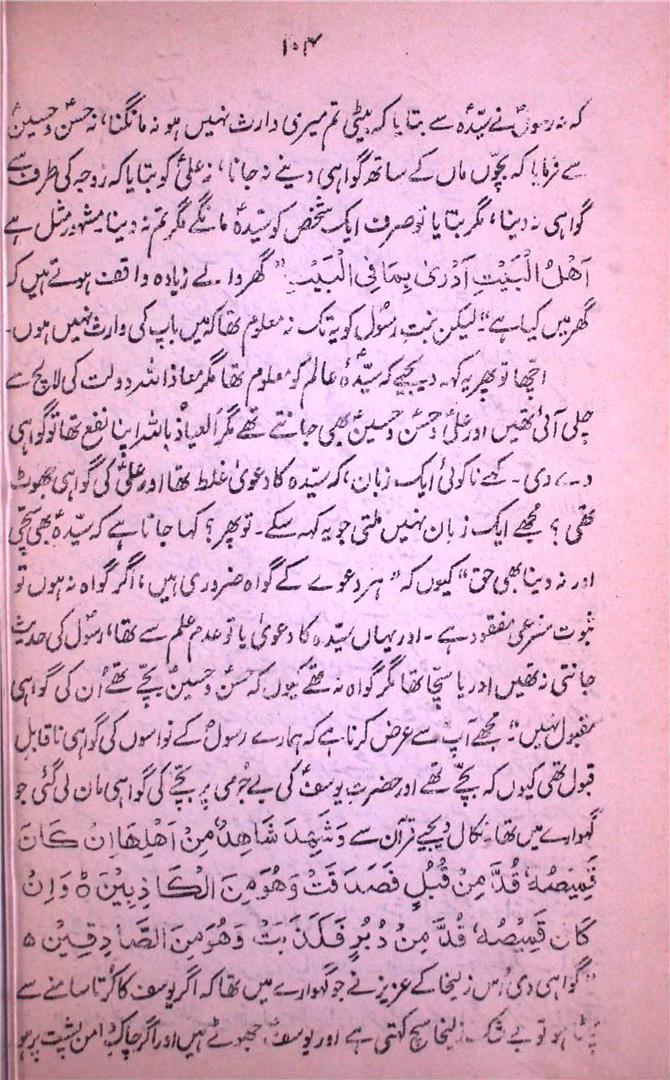 ۱۰۴
کہ نہ رسولؐ نے سیّدہؑ سے بتایا کہ بیٹی تم میری وارث نہیں ہو نہ مانگنا، نہ حسنؑ و حسینؑ
سے فرمایا کہ بچّوں ماں کے ساتھ گواہی دینے نہ جانا، نہ علیؑ کو بتایا کہ زوجہ کی طرف سے
گواہی نہ دینا، مگر بتایا تو صرف ایک شخص کو سیّدہؑ مانگے مگر تم نہ دینا۔ مشہور مثل ہے
اَھْلُ الْبَیْتِ اَدْرٰی بِمَا فِی الْبَیْتِ" گھر والے زیادہ واقف ہوتے ہیں کہ
گھر میں کیا ہے" لیکن بنتِ رسُول کو یہ تک نہ معلوم تھا کہ میں باپ کی وارث نہیں ہوں۔
اچّھا تو پھر یہ کہہ دیجیے کہ سیّدہؑ عالم کو معلوم تھا مگر معاذ اللہ دولت کی لالچ سے
چلی آئی تھیں اور علیؑ و حسنؑ و حسینؑ بھی جانتے تھے مگر العیاذُ باللہ اپنا نفع تھا تو گواہی
دے دی۔ کہے نا کوئی ایک زبان، کہ سیّدہ کا دعویٰ غلط تھا اور علیؑ کی گواہی جھوٹ
تھی؟ مجھے ایک زبان نہیں ملتی جو یہ کہہ سکے۔ تو پھر؟ کہا جاتا ہے کہ سیّدہؑ بھی سچّی
اور نہ دینا بھی حق" کیوں کہ "ہر دعوے کے گواہ ضروری ہیں، اگر گواہ نہ ہوں تو
ثبوت شرعی مفقود ہے۔ اور یہاں سیّدہ کا دعویٰ یا تو عدم علم سے تھا، رسولؐ کی حدیث
جانتی نہ تھیں اور یا سچّا تھا مگر گواہ نہ تھے کیوں کہ حسنؑ و حسینؑ بچّے تھے اُن کی گواہی
مقبول نہیں"۔ مجھے آپ سے عرض کرنا ہے کہ ہمارے رسولؐ کے نواسوں کی گواہی ناقابلِ
قبول تھی کیوں کہ بچّے تھے اور حضرت یوسفؑ کی بے جُرمی پر بچّے کی گواہی مان لی گئی جو
گہوارے میں تھا۔ نکال دیجیے قرآن سے وَشَہِدَ شَاھِدٌ مِنْ اَھْلِھَا اِنْ کَانَ
قَمِیْصُہٗ قُدَّ مِنْ قُبُلٍ فَصَدَقَتْ وَھُوَ مِنَ الْکَاذِبِیْنَ ہ وَاِنْ
کَانَ قَمِیْصُہٗ قُدَّ مِنْ دُبُرٍ فَکَذَبَتْ وَھُوَ مِنَ الصَّادِقِیْنَ ہ
"گواہی دی اُس زلیخا کے عزیز نے جو گہوارے میں تھا کہ اگر یوسف کا کُرتا سامنے سے
پھٹا ہو تو بے شک زلیخا سچ کہتی ہے اور یوسفؑ جھوٹے ہیں اور اگر چاکِ دامن پشت پر ہو